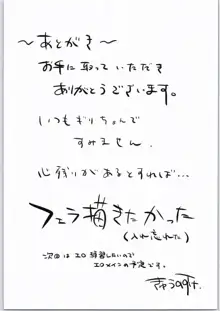 ～あとがき～
お手に取っていただき
ありがとうございます。
いつもギリちょんで
すみません。
心残りがあるとすれば…
フェラ描きたかった
(入れ忘れた)
次回はエロ練習したいので
エロメインの予定です。